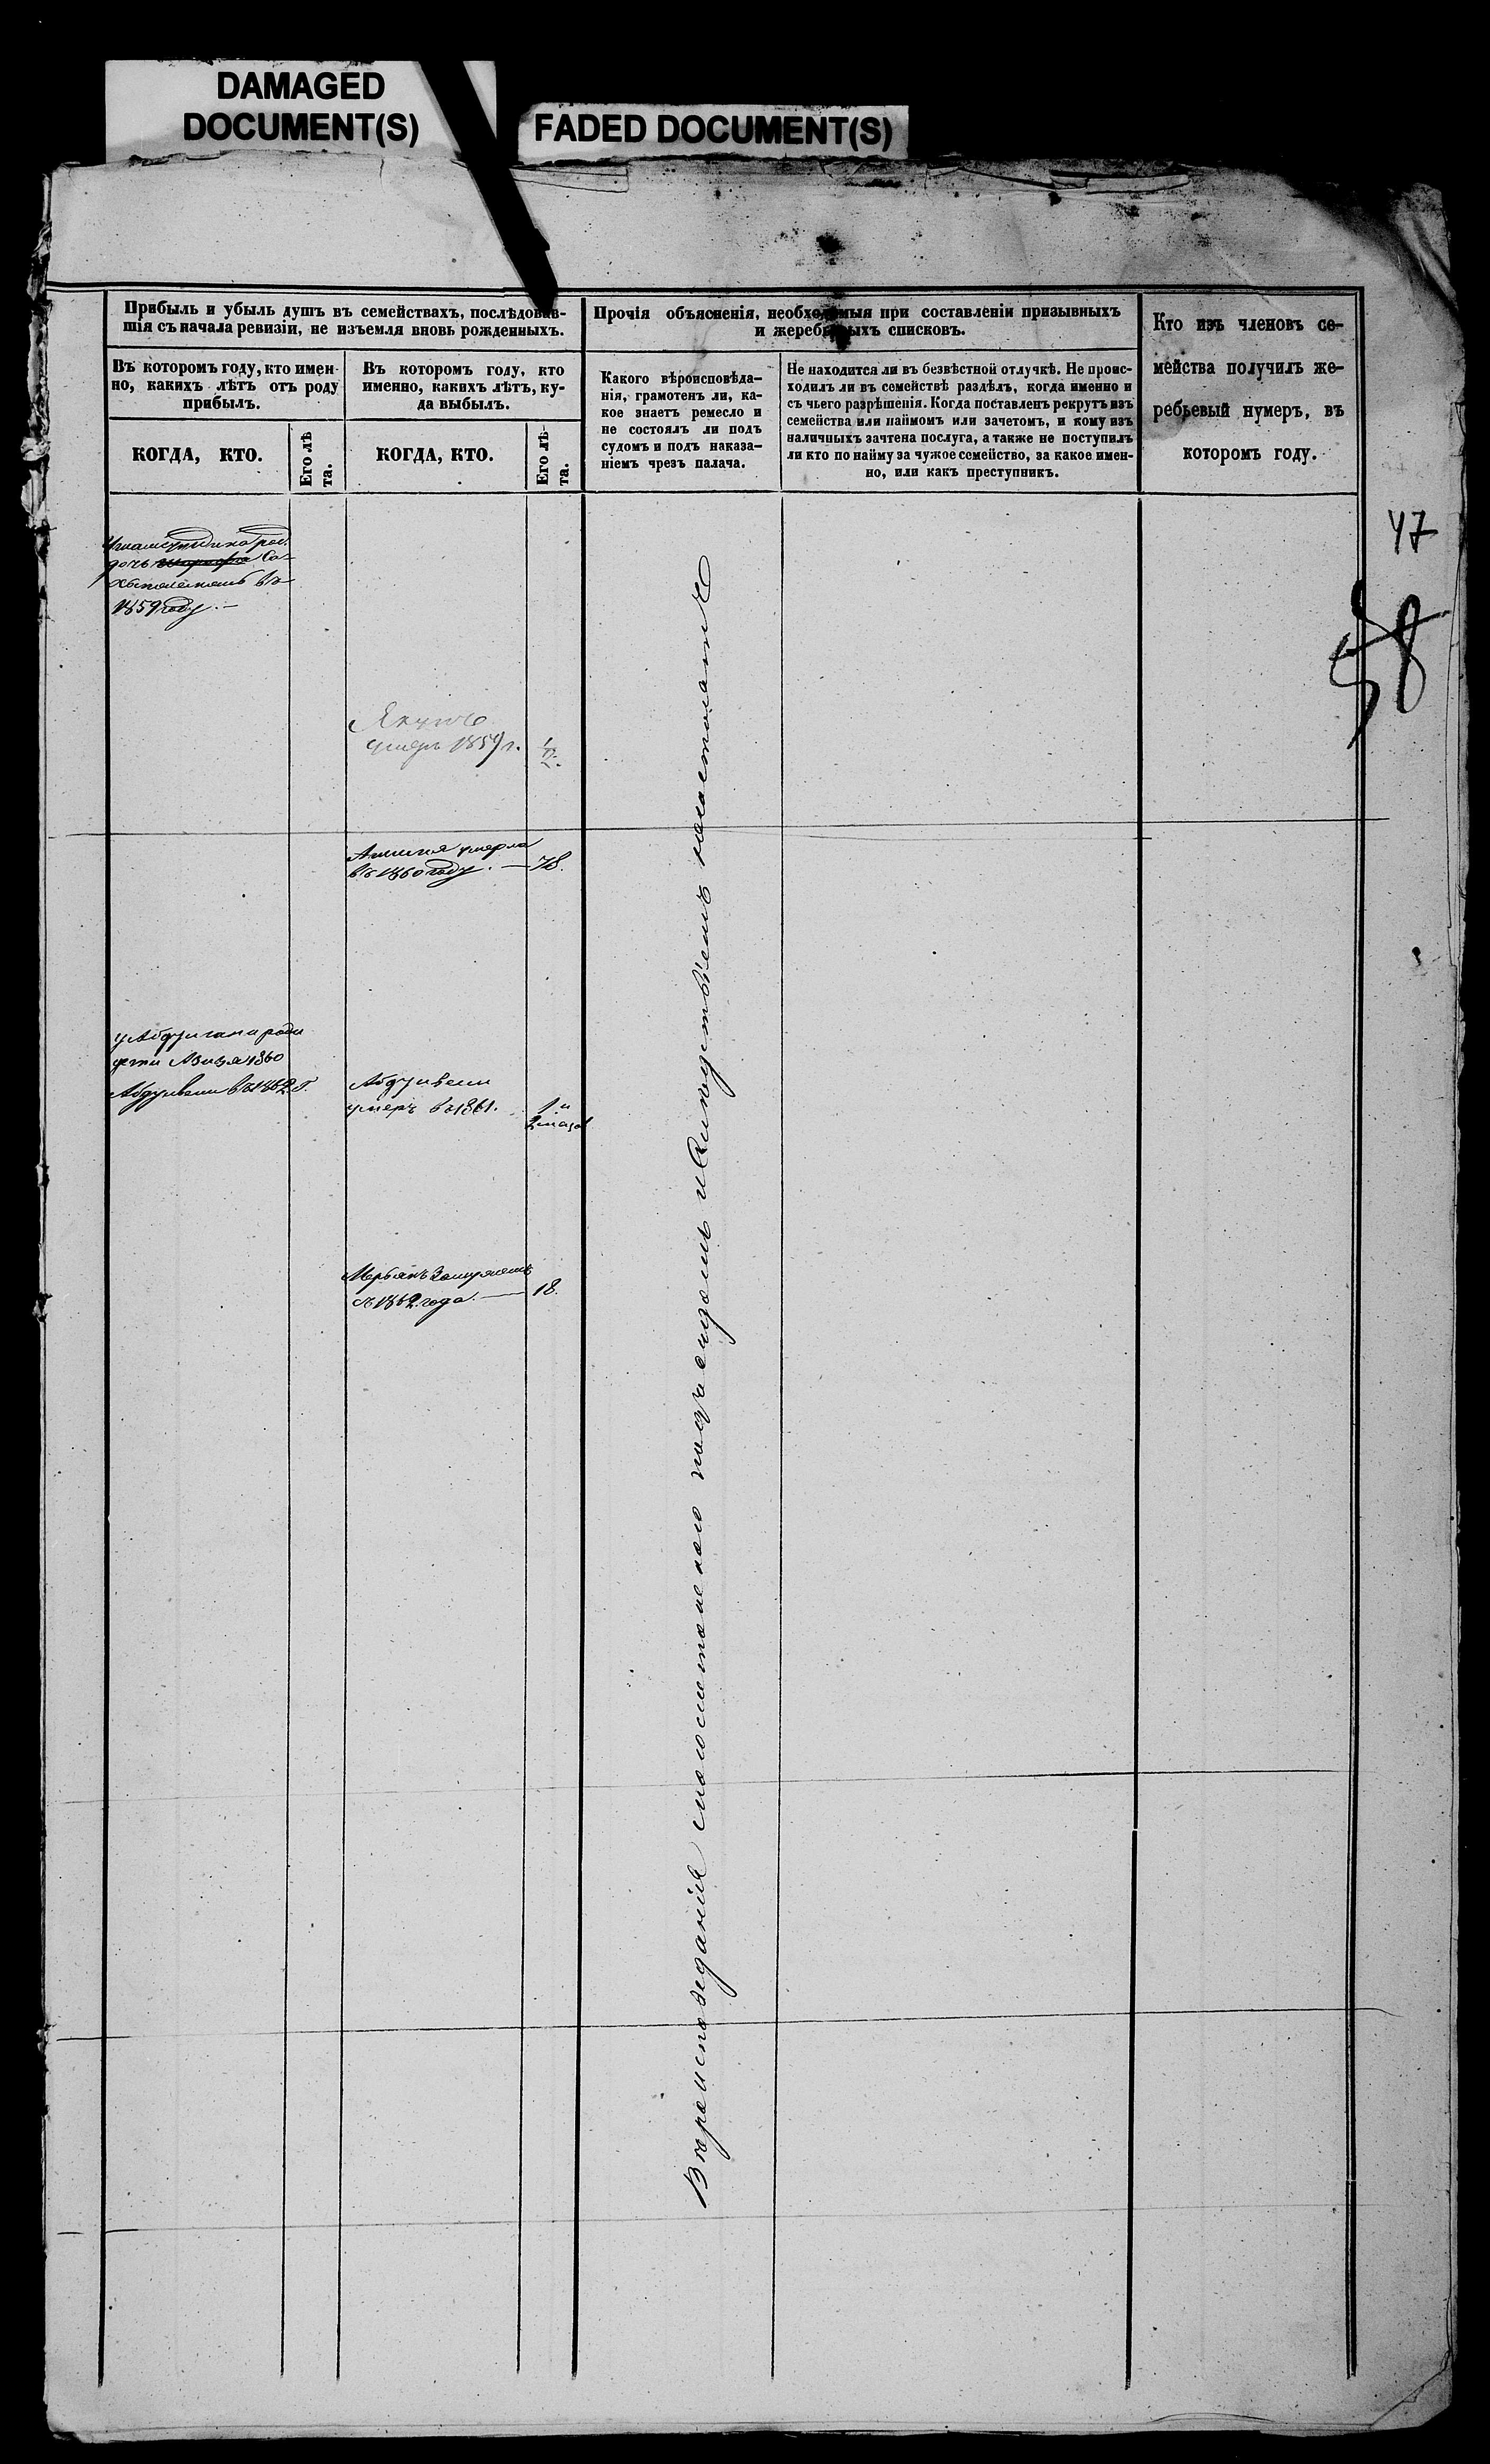 DAMAGED
DOCUMENT(S)
FADED DOCUMENT(S)
Прибыль и убыль душъ въ семействахъ, послѣдовав-
шія съ начала ревизіи, не изъемля вновь рожденныхъ.
Въ которомъ году, кто имен-
но, какихъ лѣтъ отъ роду
прибылъ.
КОГДА, КТО.
Его лѣ
та.
Въ которомъ году, кто
именно, какихъ лѣтъ, ку-
да выбылъ.
КОГДА, КТО.
Его лѣ-
та.
Прочія объясненія, необходимыя при составленіи призывныхъ
и жеребьевыхъ списковъ.
Какого вѣроисповѣда-
нія, грамотенъ ли, ка-
кое знаетъ ремесло и
не состоялъ ли подъ
судомъ и подъ наказа-
ніемъ чрезъ палача.
Не находится ли въ безвѣстной отлучкѣ. Не проис-
ходилъ ли въ семействѣ раздѣлъ, когда именно и
съ чьего разрѣшенія. Когда поставленъ рекрутъ изъ
семейства или наймомъ или зачетомъ, и кому изъ
наличныхъ зачтена послуга, а также не поступилъ
ли кто по найму за чужое семейство, за какое имен-
но, или какъ преступникъ.
Кто изъ членовъ се-
мейства получилъ же-
ребьевый нумеръ, въ
которомъ году.
47
58
дочь
въ
1859 году.
умеръ 1859 г.
умерла
въ 1860 году. — 78.
у Абдулгани роди
1860
въ 1862 г.
Абдулвели
умеръ въ 1861. 1 и
замужемъ
съ 1862 года. — 18.
Вѣроисповеданія магометанскаго подъ судомъ и слѣдствіемъ несостоятъ